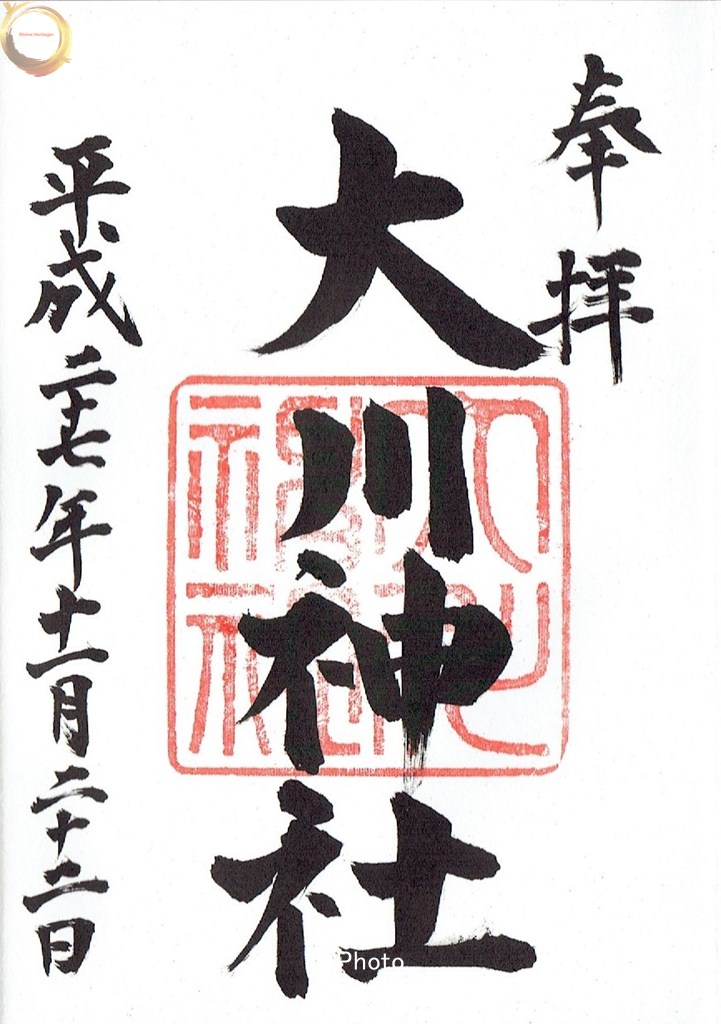 奉拝
大川神社
平成二十七年十一月二十二日
Photo